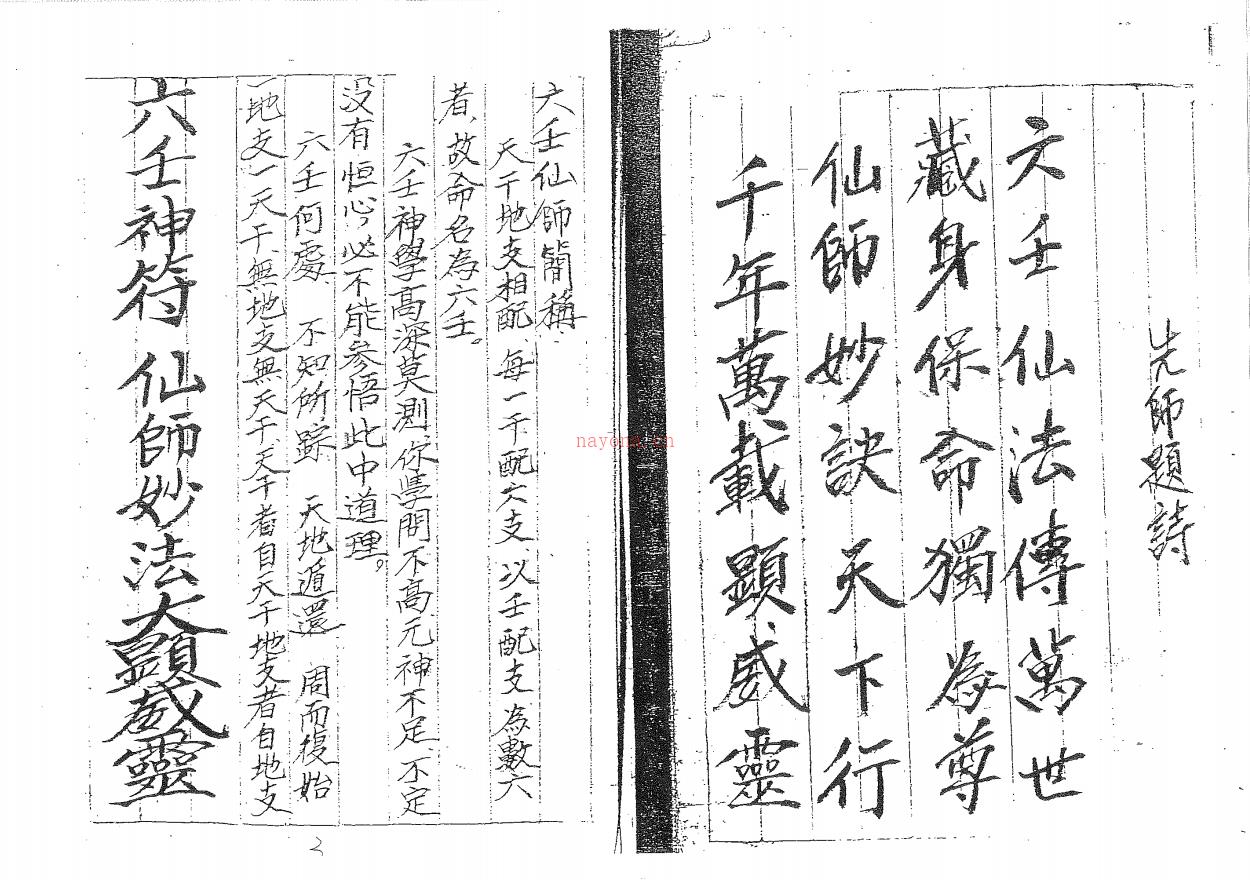 先師題詩
六壬仙法傳萬世
藏身保命獨為尊
仙師妙訣天下行
千年萬載顯威靈
六壬仙師簡稱、
天干地支相配、每一干配六支、以壬配支為數六
者、故命名為六壬。
六壬神學高深莫測、你學問不高、元神不足、不定
沒有恒心、必不能參悟此中道理。
六壬何處 不知所踪 天地遁還 周而復始
一地支一天干、無地支無天干、天干者自天干地支者自地支
六壬神符仙師妙法大顯威靈
2
nayona.cn